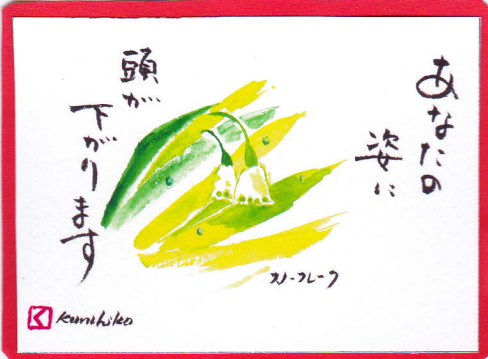 あなたの
姿に
頭が
下がります
スノーフレーク
く kunihiko